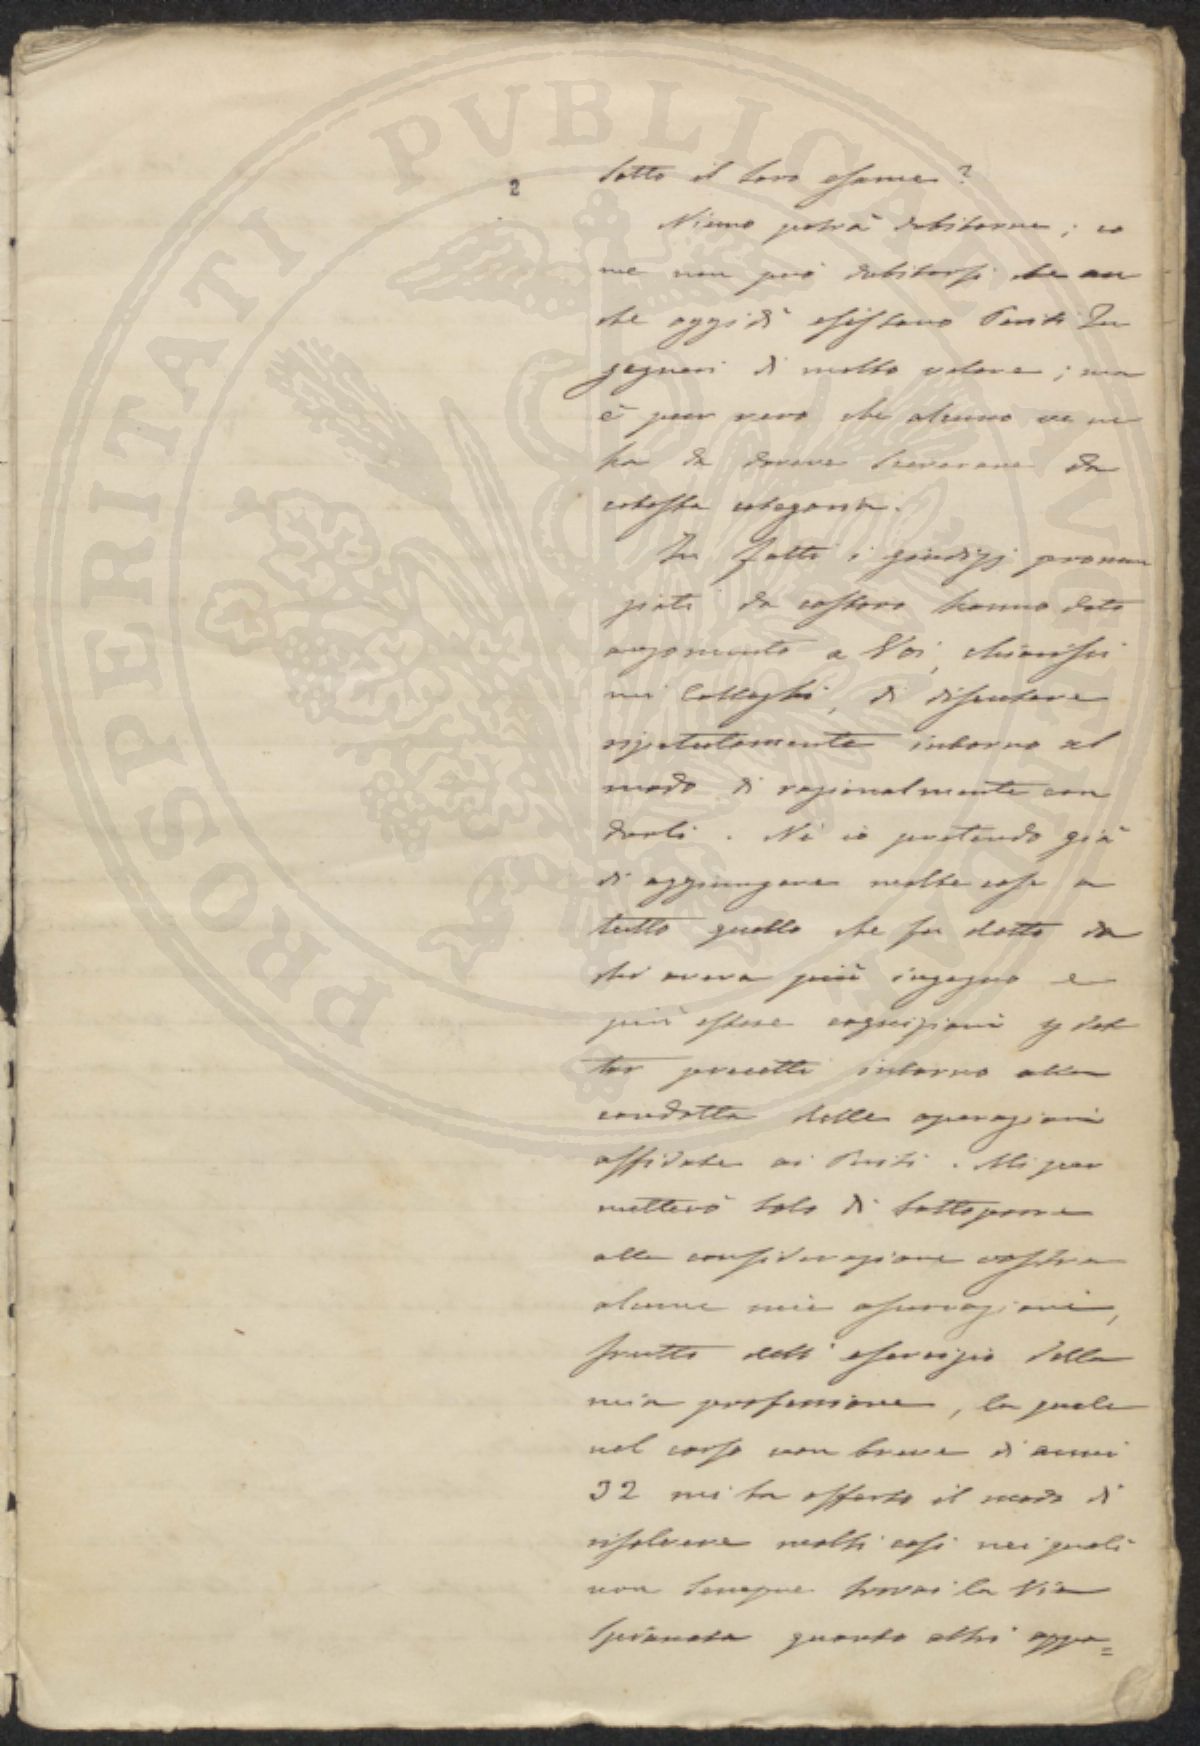 2
sotto il loro esame?
Niuno potrà dubitarne; co
me non può dubitarsi che an
che oggidì esistano Periti In
gegneri di molto valore; ma
è pur vero che alcuno ve ne
ha da doversi sceverare da
cotesta categoria.
In fatti i giudizj pronun
ziati da costoro hanno dato
argomento a Voi, chiarissi
mi Colleghi, di discutere
ripetutamente intorno al
modo di razionalmente con
durli. Nè io pretendo già
di aggiungere molte cose a
tutto quello che fu detto da
chi aveva più ingegno e
più estese cognizioni p det
tar precetti intorno alla
condotta delle operazioni
affidate ai Periti. Mi per
metterò solo di sottoporre
alla considerazione vostra
alcune mie osservazioni,
frutto dell'esercizio della
mia professione, la quale
nel corso non breve di anni
32 mi ha offerto il modo di
risolvere molti casi nei quali
non sempre trovai la via
spianata quanto altri appa=
PROSPERITATI PVBLICAE AVGENDAE